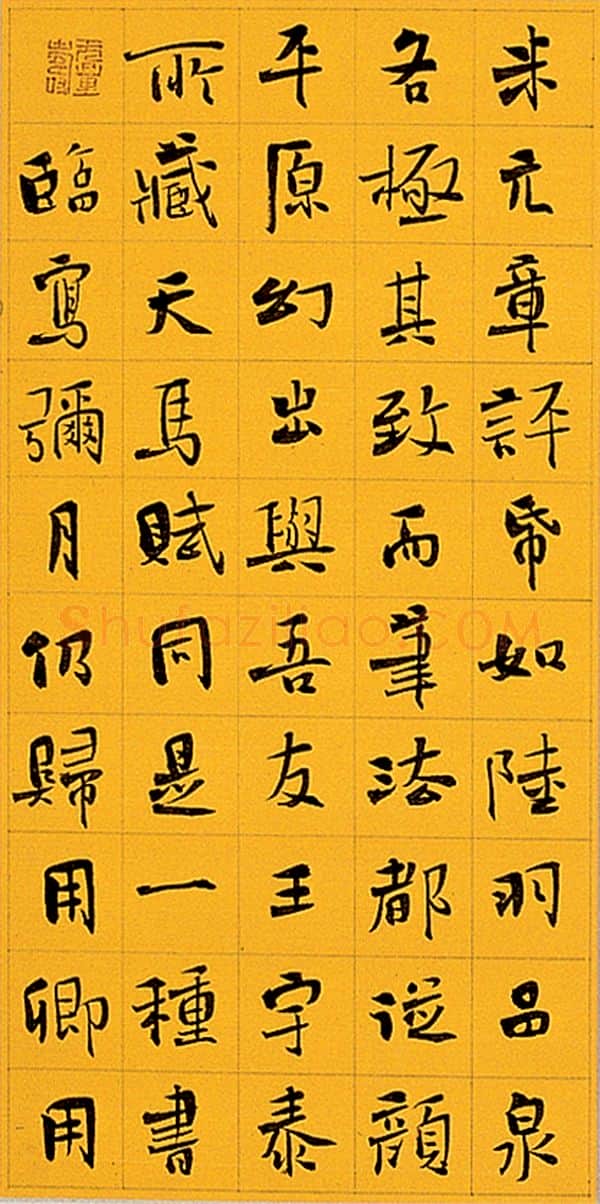 米元章評帋如陸羽品泉
各極其致而筆法都從顏
平原幻出與吾友王宇泰
所藏天馬賦同是一種書
臨寫彌月仍歸用卿用
Shufaziliao.COM